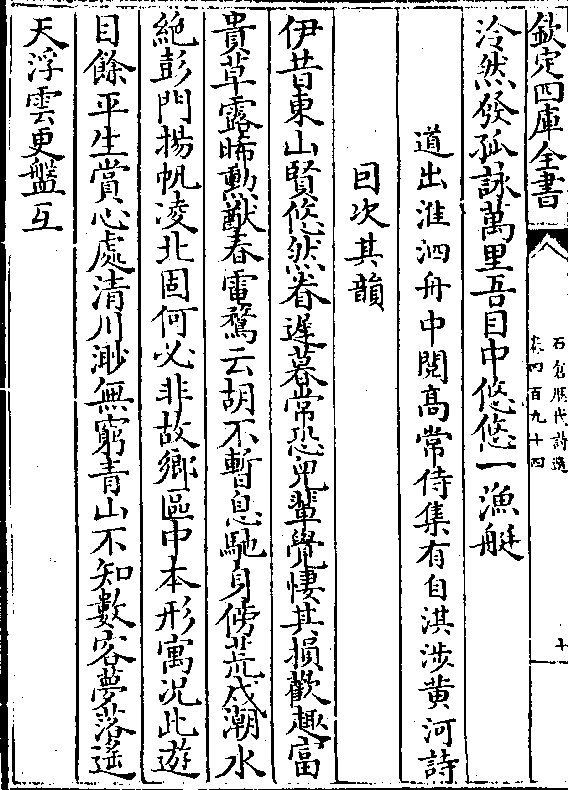 欽定四庫全書
石倉歷代詩選
卷四百九十四
十
泠然發孤詠萬里吾目中悠悠一漁艇
道出淮泗舟中閱高常侍集有自淇涉黄河詩
因次其韻
伊昔東山賢悠然眷遲暮常恐兒輩覺悽其損歡趣富
貴草露晞勲猷春電騖云胡不暫息馳身傍荒戍潮水
絶彭門揚帆凌北固何必非故鄉區中本形寓况此遊
目餘平生賞心處清川渺無窮青山不知數客夢落遥
天浮雲更盤互